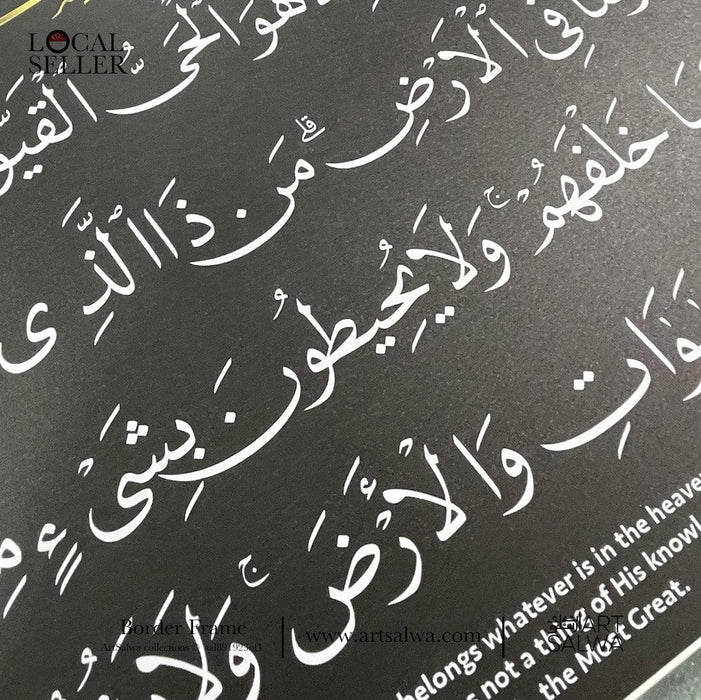 LOCAL
SELLER
هُوَ ٱلْحَىُّ ٱلْقَيُّ
فِى ٱلْأَرْضِ ۗ مَن ذَا ٱلَّذِى
خَلْفَهُمْ ۖ وَلَا يُحِيطُونَ بِشَىْءٍ مِّ
وَٰتِ وَٱلْأَرْضَ ۖ وَلَا
belongs whatever is in the heaven
not a thing of His knowl
the Most Great.
Border Frame
ArtSalwa collections © sal891923of1
www.artsalwa.com
ART
SALWA